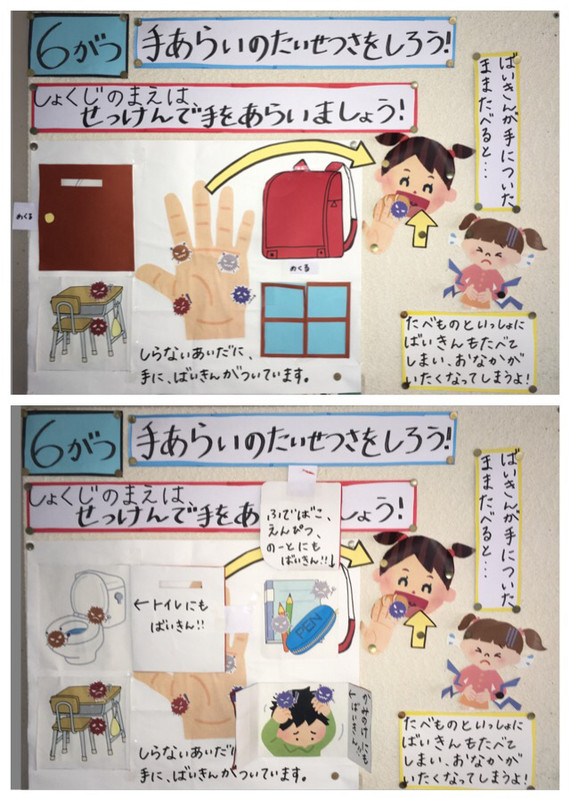 6がつ
手あらいのたいせつさをしろう!
しょくじのまえは、
せっけんで手をあらいましょう!
ばいきんが手についた
ままたべると…
めくる
めくる
しらないあいだに、
手に、ばいきんがついています。
たべものといっしょに
ばいきんもたべて
しまい、おなかが
いたくなってしまうよ!
6がつ
手あらいのたいせつさをしろう!
しょくじのまえは、
せっけんで手をあ
しょう!
ふでばこ、
えんぴつ、
のーとにも
ばいきん!!↓
ばいきんが手についた
ままたべると…
←トイレにも
ばいきん!!
PEN
かみのけにも
ばいきん!!
しらないあいだ
手に、ばいきんがついています。
たべものといっしょに
ばいきんもたべて
しまい、おなかが
いたくなってしまうよ!